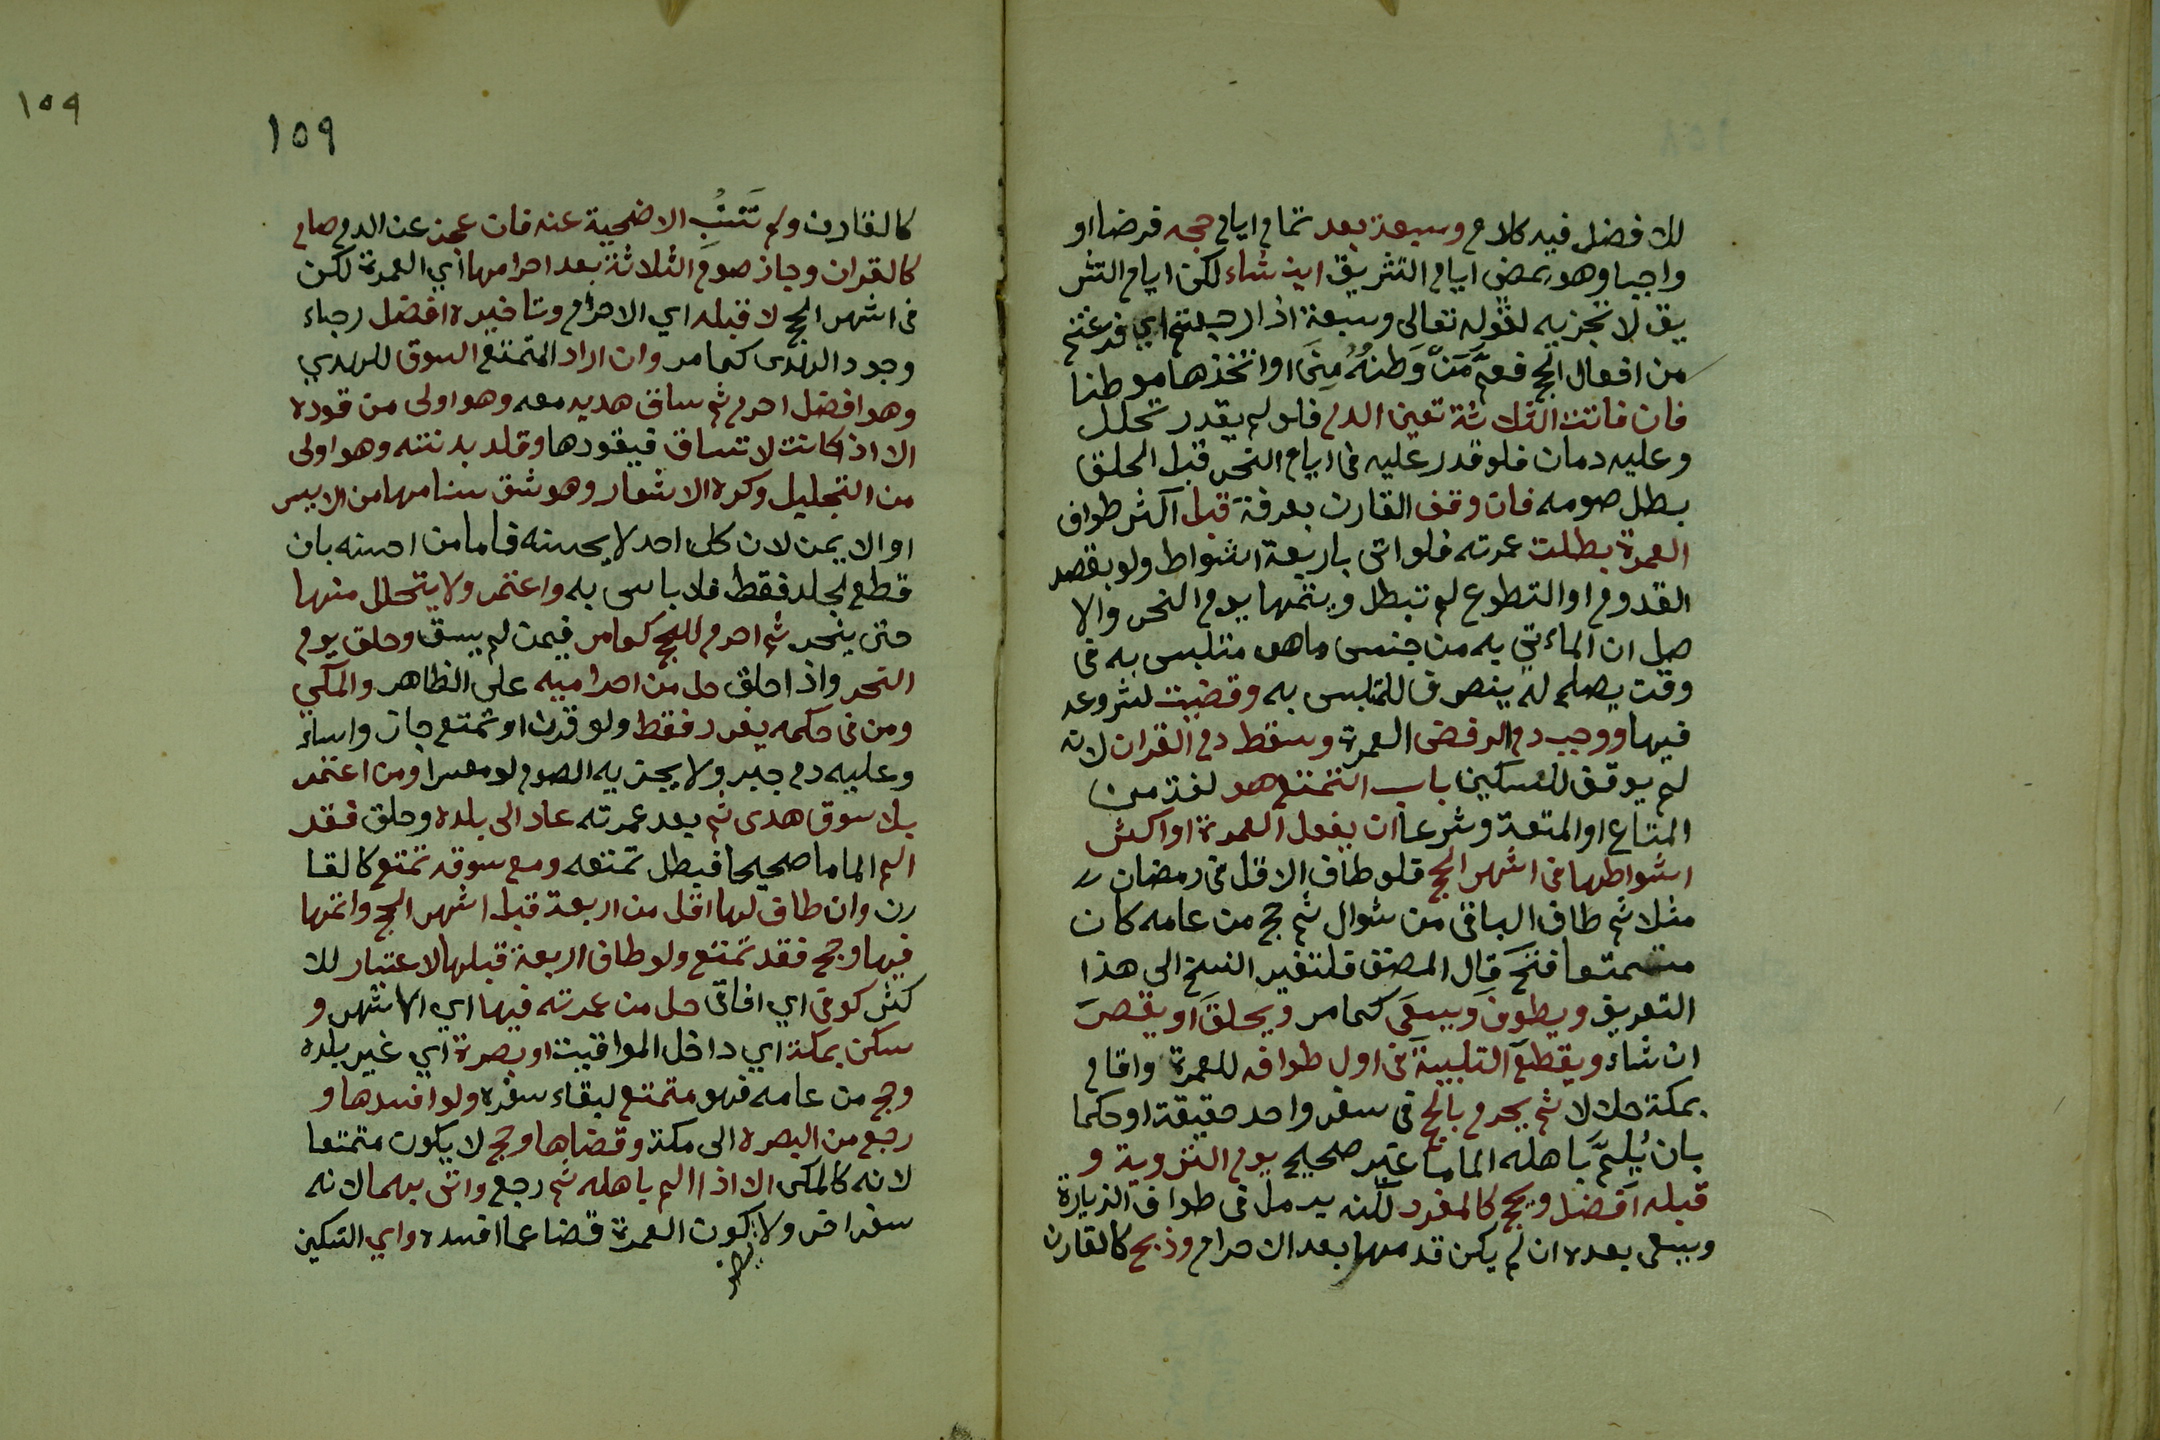 لك فضل فيه كلام وسبعة بعد تمام ايام حجه فرضا او
واجبا وهو بمضى ايام التشريق اين شاء لكن ايام التشر
يق لا تجزيه لقوله تعالى وسبعة اذا رجعتم اي فرغتم
من افعال الحج فعمَّ مَنْ وَطنُهُ مِنَى او اتخذها موطنا
فان فاتت الثلاثة تعين الدم فلو لم يقدر تحلل
وعليه دمان فلو قدر عليه فى ايام النحر قبل الحلق
بطل صومه فان وقف القارن بعرفة قبل اكثر طواف
العمرة بطلت عمرته فلو اتى باربعة اشواط ولو بقصد
القدوم او التطوع لم تبطل ويتمها يوم النحر والا
صل ان الماءتي به من جنس ما هو متلبس به فى
وقت يصلح له ينصرف للمتلبس به وقضيت لشروعه
فيها ووجب دم الرفض العمرة وسقط دم القران لانه
لم يوفق للنسكين باب التمتع هو لغة من
المتاع او المتعة وشرعا ان يفعل العمرة او اكثر
اشواطها فى اشهر الحج فلو طاف الاقل فى رمضان
مثلا ثم طاف الباقى من شوال ثم حج من عامه كان
متمتعا فتح قال المصنف فلتغير النسخ الى هذا
التعريف ويطوفَ ويسعَى كما مر ويحلقَ او يقصرَ
ان شاء ويقطعَ التلبيةَ فى اول طوافه للعمرة واقام
بمكة حلالا ثم يحرم بالحج فى سفر واحد حقيقة او حكما
بان يُلِمَّ باهله الماما غير صحيح يوم التروية و
قبله افضل ويحج كالمفرد لكنه يرمل فى طواف الزيارة
ويسعى بعده ان لم يكن قدمهما بعد الاحرام وذبح كالقارن
١٥٩
١٥٩
كالقارن ولم تَنُبِ الاضحية عنه فان عجز عن الدم صام
كالقران وجاز صوم الثلاثة بعد احرامها اي العمرة لكن
فى اشهر الحج لا قبله اي الاحرام وتاخيره افضل رجاء
وجود الهدى كما مر وان اراد المتمتع السوق للهدي
وهو افضل احرم ثم ساق هديه معه وهو اولى من قوده
الا اذا كانت لا تساق فيقودها وقلد بدنته وهو اولى
من التجليل وكره الاشعار وهو شق سنامها من الايسر
او الايمن لان كل احد لا يحسنه فاما من احسنه بان
قطع الجلد فقط فلا باس به واعتمر ولا يتحلل منها
حتى ينحر ثم احرم للحج كما مر فيمن لم يسق وحلق يوم
النحر واذا حلق حل من احراميه على الظاهر والمكي
ومن فى حكمه يفرد فقط ولو قرن او تمتع جاز واساء
وعليه دم جبر ولا يجزيه الصوم لو معسرا ومن اعتمر
بلا سوق هدى ثم بعد عمرته عاد الى بلده وحلق فقد
الم الماما صحيحا فبطل تمتعه ومع سوقه تمتع كالقا
رن وان طاف لها اقل من اربعة قبل اشهر الحج واتمها
فيها وحج فقد تمتع ولو طاف اربعة قبلها لا اعتبار للا
كثر كوفى اي افاقى حل من عمرته فيها اي الاشهر و
سكن بمكة اي داخل المواقيت او بصرة اي غير بلده
وحج من عامه فهو متمتع لبقاء سفره ولو افسدها و
رجع من البصرة الى مكة وقضاها وحج لا يكون متمتعا
لانه كالمكى الا اذا الم باهله ثم رجع واتى بهما لانه
سفر اخر ولا يكون العمرة قضا عما افسده واي النسكين